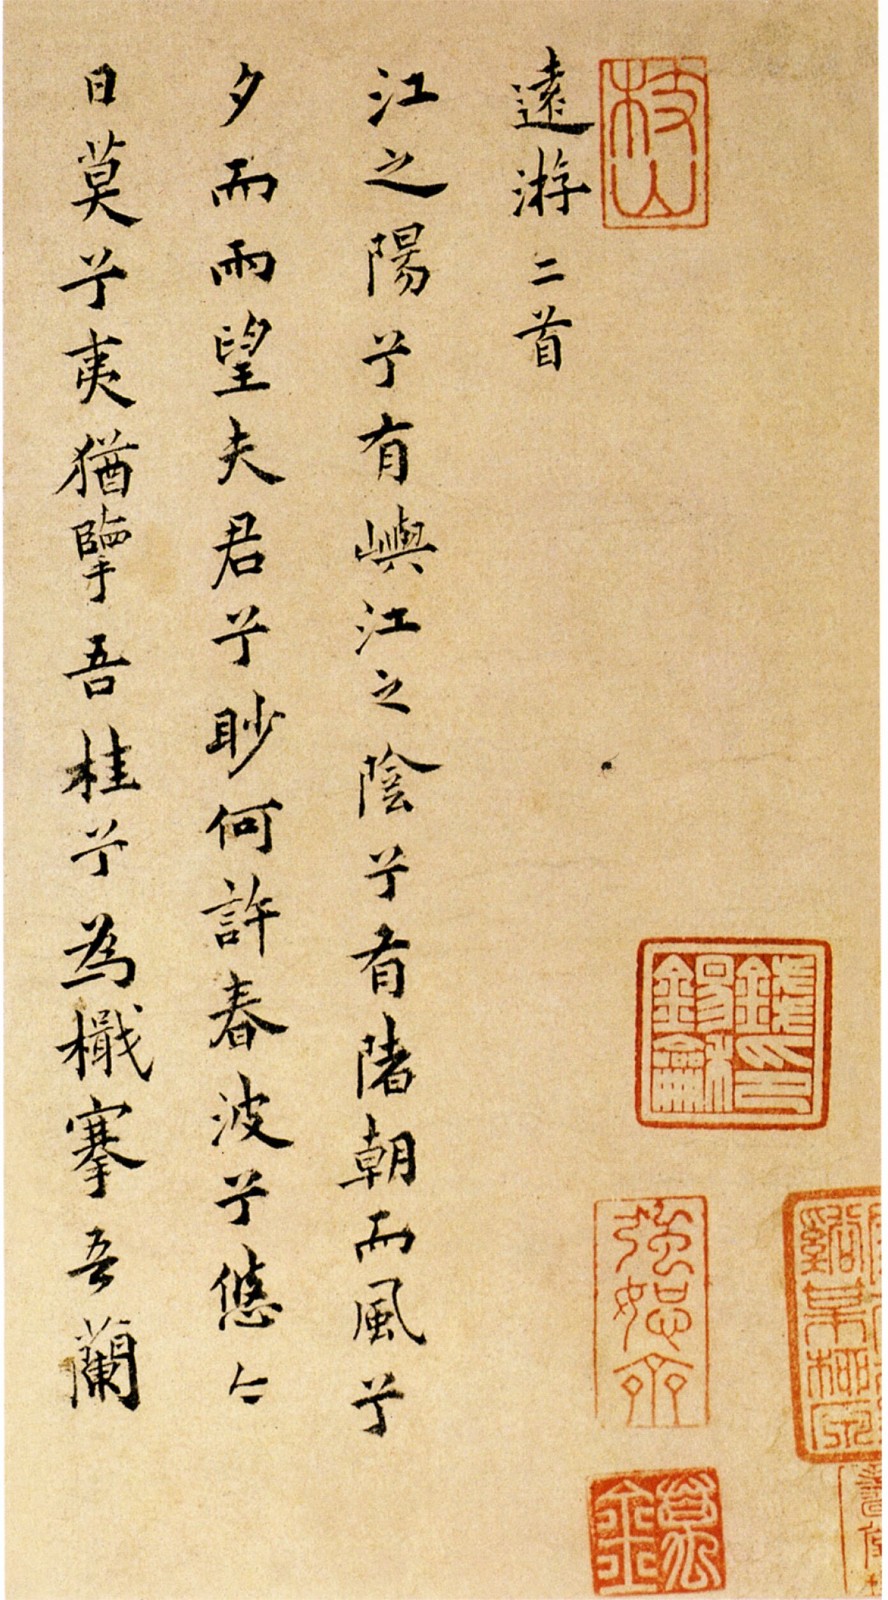 遠游二首
江之陽兮有嶼江之陰兮有陼朝而風兮
夕而雨望夫君兮眇何許春波兮悠〻
日莫兮夷猶擥吾桂兮為檝搴吾蘭
枝山
強恕齋